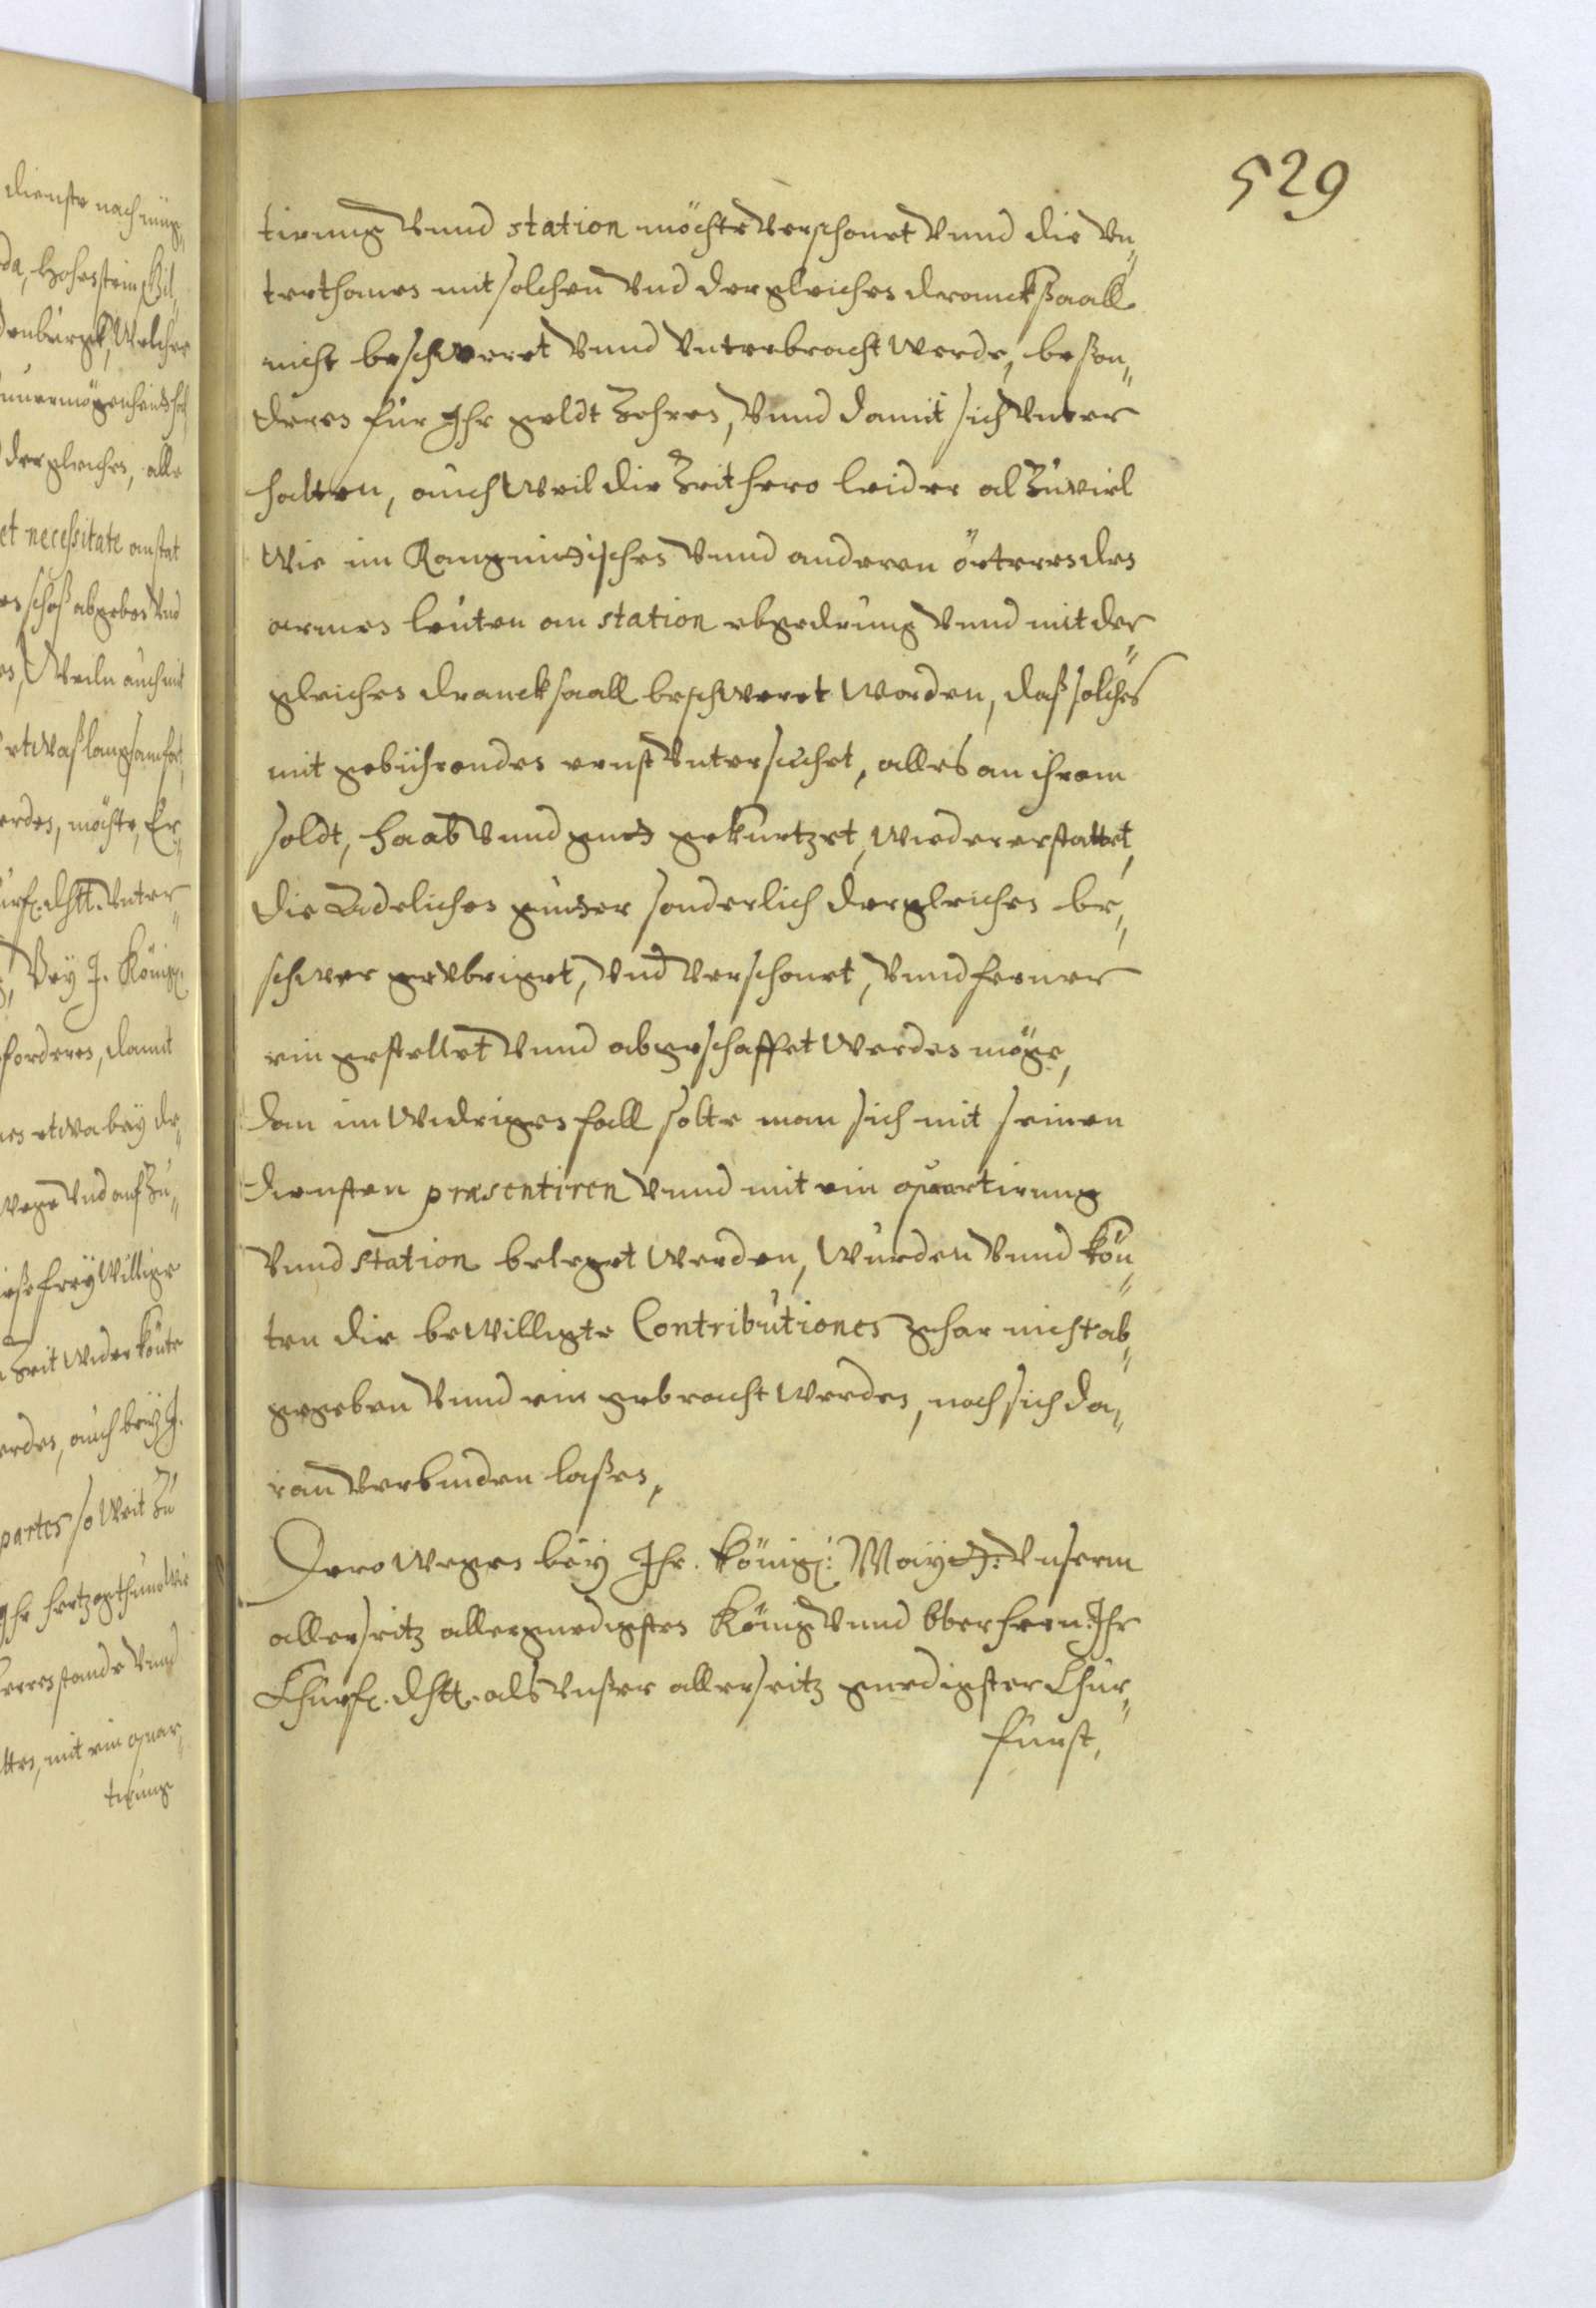 529
tirung vnnd station möchte verschonet vnnd die vn„
terthanen mit solchen vnd dergleichen drancksaall
nicht beschweret vnnd vnterbracht werde, beson„
deren für Ihr geldt zehren, vnnd damit sich vnter
halten, auch weil die Zeithero leider alzuviel
wie im Ragnitischen vnnd anderen örteren den
armen leuten an station abgedrung vnnd mit der„
gleichen drancksaall beschweret worden, daß solches
mit gebührenden ernst vntersuchet, alles an ihrem
soldt, haab vnnd gutt gekurtzet, wiedererstattet,
die Adelichen gütter sonderlich dergleichen be„
schwer geübriget, vnd verschonet, vnnd ferner
ein gestellet vnnd abgeschaffet werden möge,
dan im wiedrigen fall solte man sich mit seinen
diensten præsentiren vnnd mit ein quartirung
vnnd station beleget werden, würden vnnd kön„
ten die bewilligte Contributiones gahr nicht ab„
gegeben vnnd ein gebracht werden, noch sich da„
ran verbinden laßen,
Dero wegen bey Ihr. Königl: Maytt: vnserm
allerseitz allergnedigsten König vnnd Oberherrn Ihr
Churfl. dhtt. als vnßer allerseitz gnedigster Chur„
fürst,
dienste nach müg„
da, Hohestein, Gil„
denburgk, welcher
dergleichen, alle
et necessitate anstat
schoß abgeben vnd
weiln auch mit
etwaß langsam fort
erden, möchte, Er„
urfl. dhtt. vnter„
bey I. Königl.
fordern, damit
etwa bey de„
wege vnd auf zu„
frey willige
Zeit wieder könte
erden, auch bey I.
partes so weit zu
Ihr Hertzogthumb wie
stande vnnd
mit ein quar„
tirung